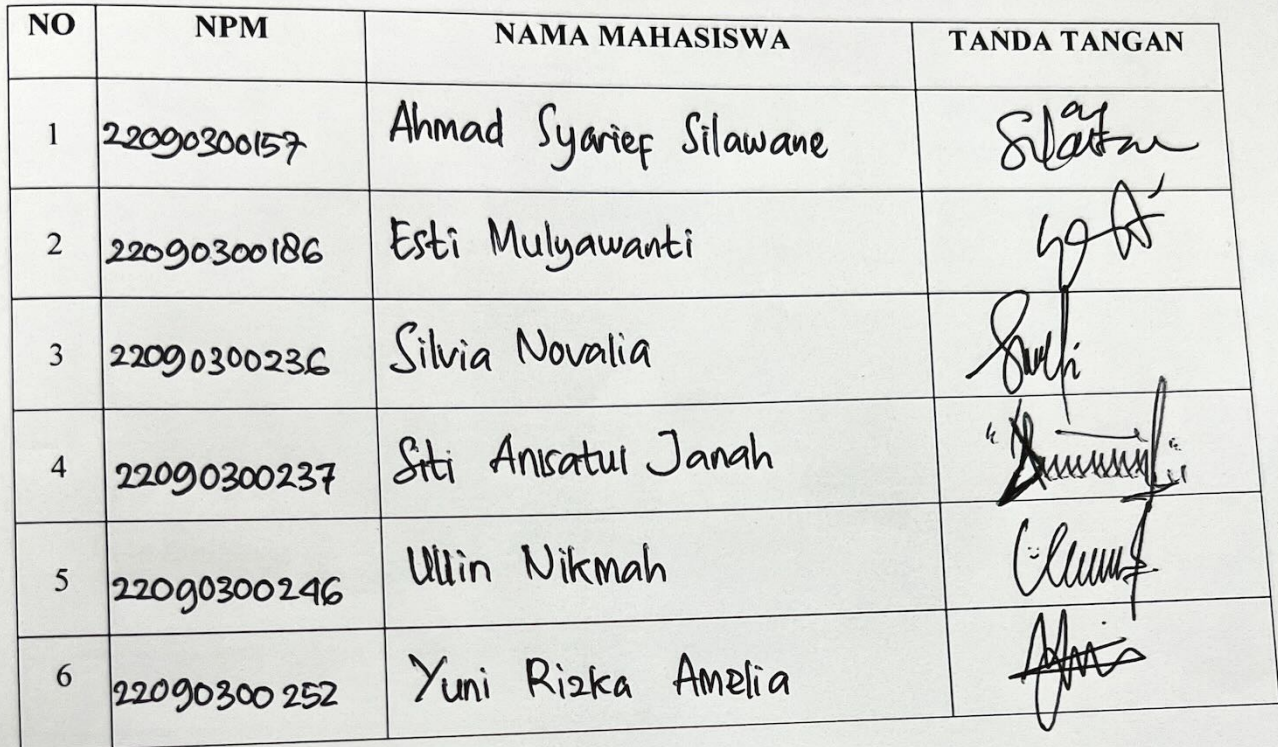 NO NPM NAMA MAHASISWA TANDA TANGAN
1 22090300157 Ahmad Syarief Silawane
2 22090300186 Esti Mulyawanti
3 22090300236 Silvia Novalia
4 22090300237 Siti Anisatul Janah
5 22090300246 Ullin Nikmah
6 22090300252 Yuni Rizka Amelia